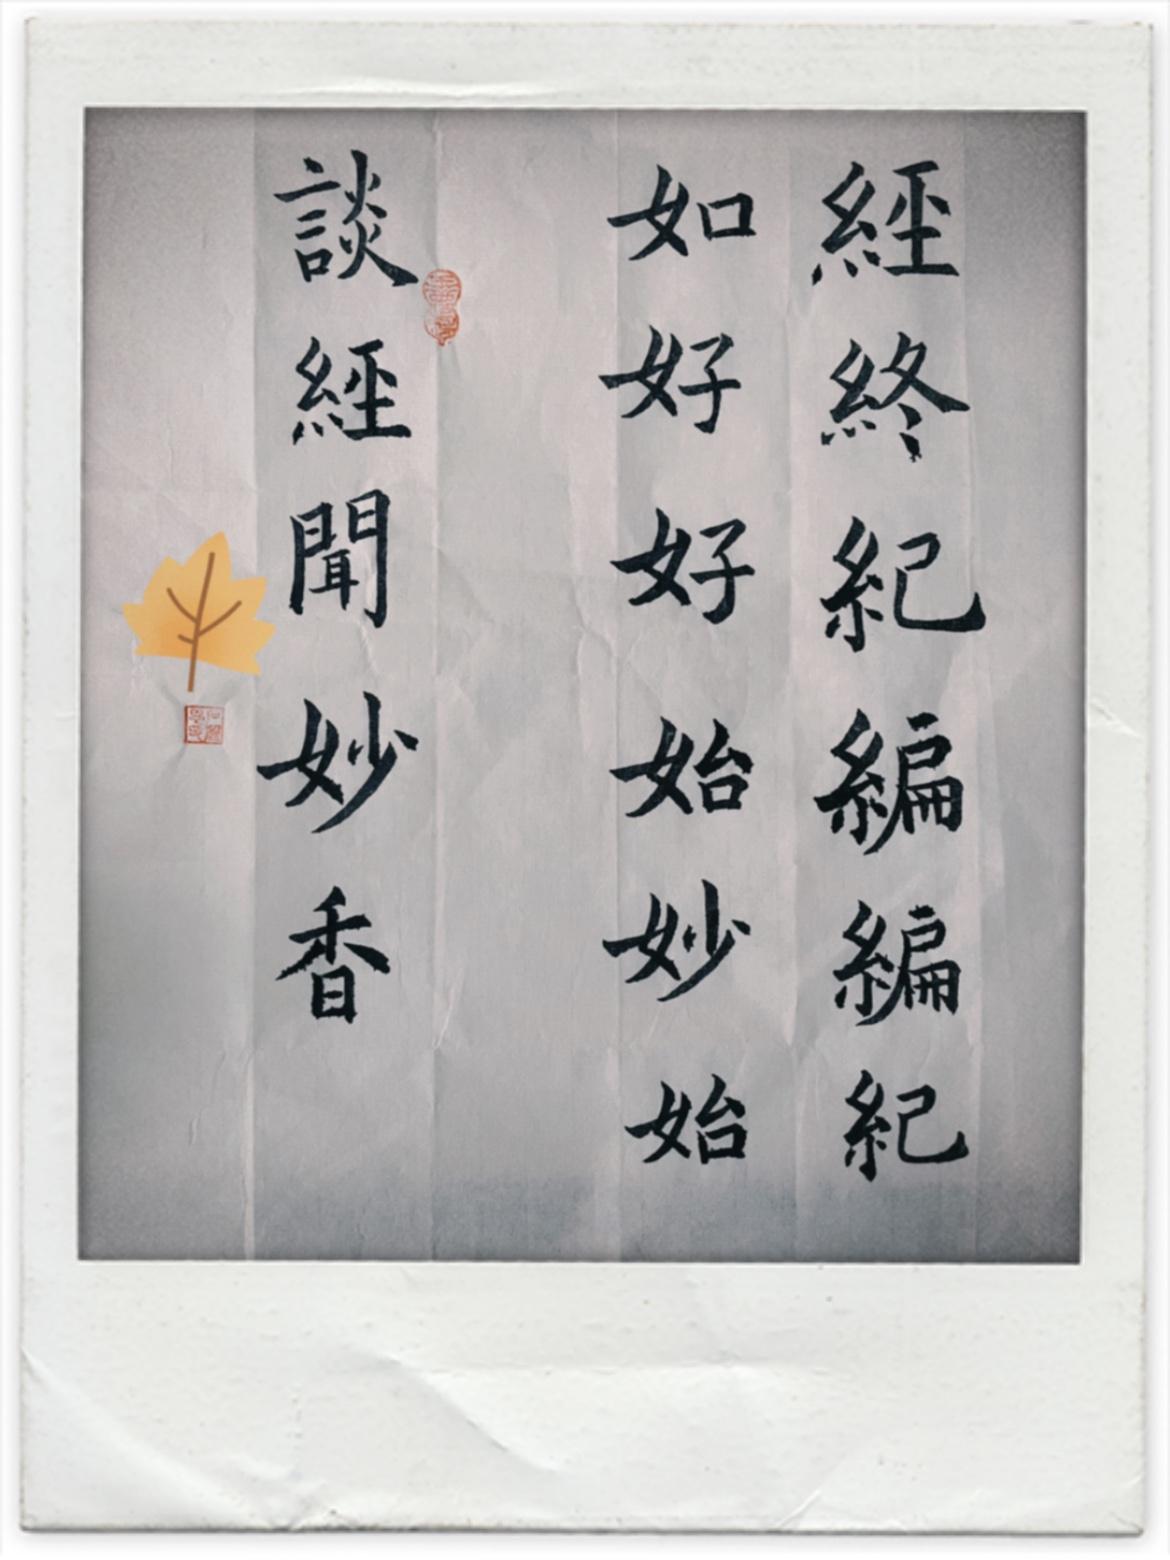 經終紀編編紀
如好好始妙始
談經聞妙香